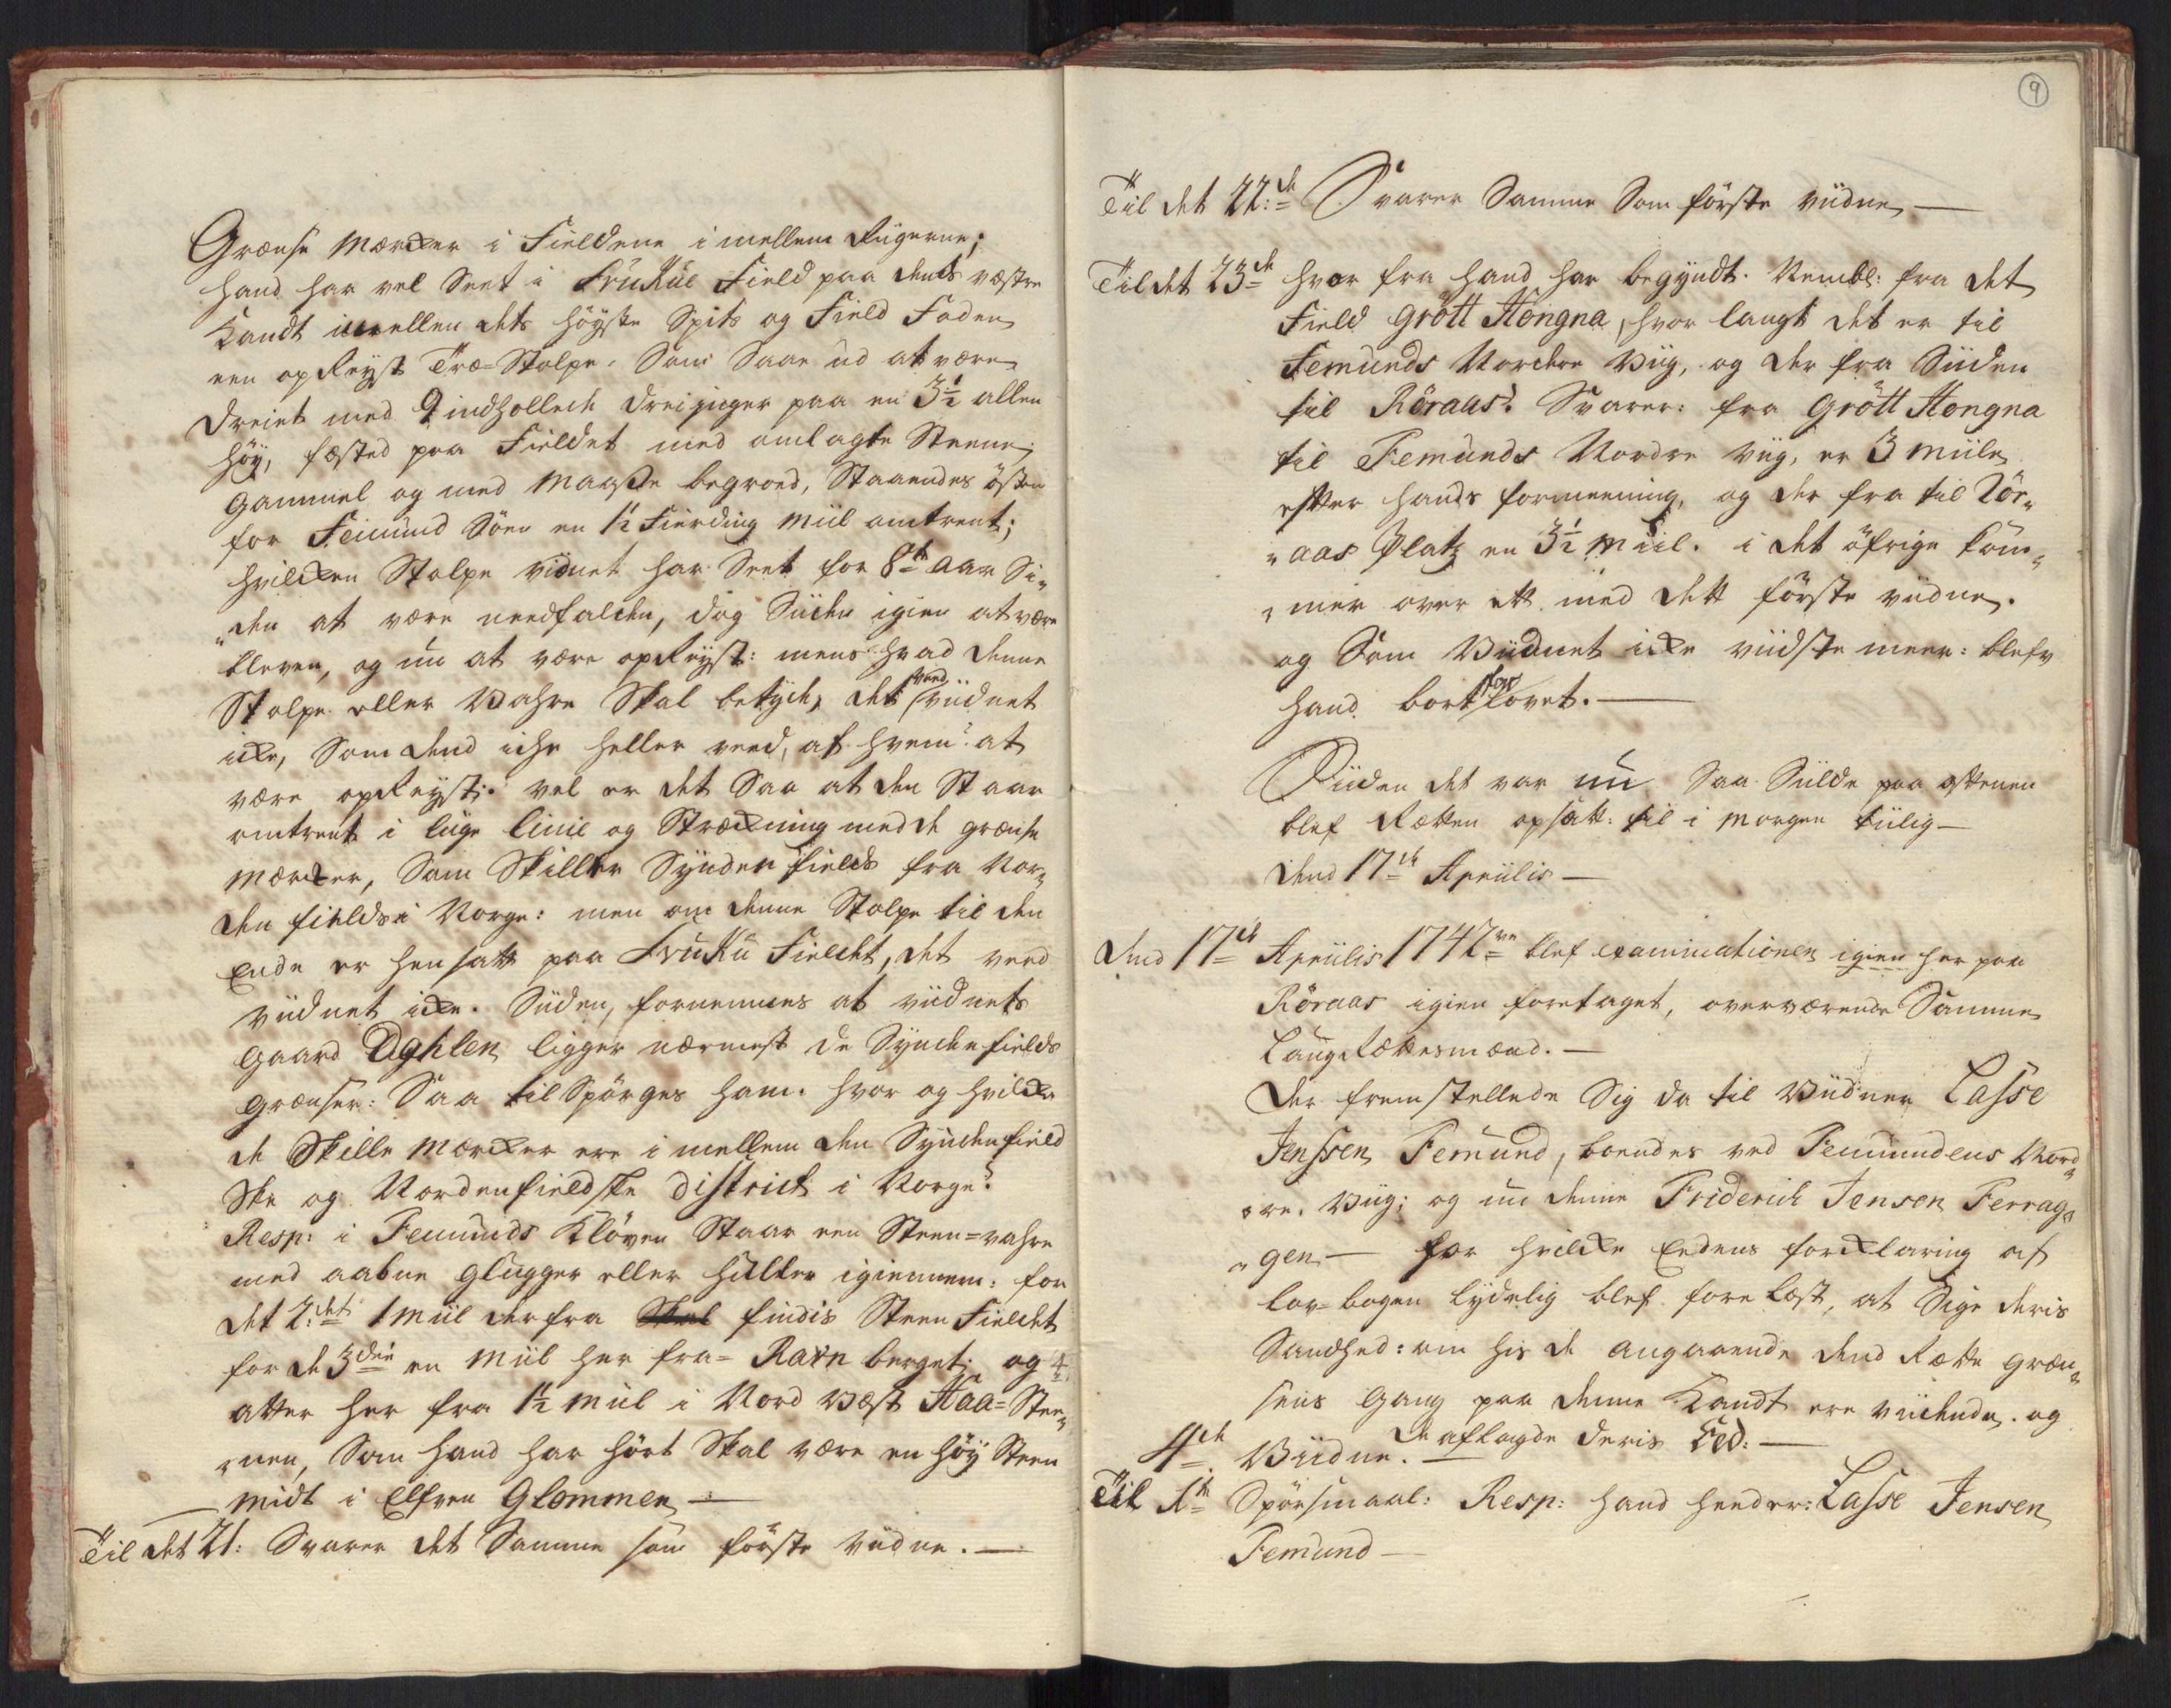 Grænse Mærker i Fieldene i mellem Rigerne;
hand har vel Seet i Svukûe Field paa dends vestre
Kandt imellem dets höyste Spits og Field Foden
een opReyst Træ-Stolpe, Som Saae ud at være
dreiet med 9 indhollede dreininger paa en 3½ allen
höy, fæsted paa Fieldet med omlagte Steene,
gammel og med Maasse begroed, Staaendes östen
for Femund Söen en 1½ Fierding Miil omtrent;
hvilcken Stolpe vidnet har Seet for 8te Aar Si„
„den at være needfalden, dog Siden igien at være
bleven, og nu at være opReyst: mens hvad denne
Stolpe eller Vahre Skal betyde, det veed viidnet
icke, Som dend icke heller veed, af hvem at
være opReyst: vel er det Saa at den Staar
omtrent i liige linie og Streckning med de grænse
Mercker, Som Skiller Synden fields fra Nor„
den fields i Norge: men om denne Stolpe til den
Ende er hensatt paa Svukû Fieldet, det veed
viidnet icke. Siiden, fornemmes at viidnets
gaard Dahlen ligger nærmest de Syndenfields
grænser: Saa tilSpörges ham: hvor og hvilcke
de Skille Mercker ere i mellem den Syndenfield
ske og Nordenfieldske District i Norge?
Resp: i Femunds Klöven Staar een Steen=vahre
med aabne Glugger eller Huller igiennem: for
det 2:det 1 Miil derfra findis Steen Fieldet
for de 3die en Miil her fra= Ravnberget; og 4
atter her fra 1½ Miil i Nord Vest Haa=Stee„
„nen, Som hand har hört Skal være en höy Steen
midt i Elfven Glommen —
Til det 21: Svarer det Samme som förste viidne. —
9
Til det 22:de Svarer Samme Som förste viidne —
Til det 23de hvor fra hand har begyndt. Nembl: fra det
Field Grött Hongna, hvor langt det er til
Femunds Nordre Viig, og der fra Siiden
til Röraas? Svarer: fra Grött Hongna
til Femunds Nordre viig, er 3 Miile
efter hands formeening, og der fra til Rör„
„aas Platz en 3½ Miil. i det öfrige kom„
„mer over ett med dett förste viidne.
og Som Viidnet icke viidste meer: blefv
hand bort forlovet. —
Siiden det var nu Saa Siilde paa aftenen
blef Retten opsatt: til i Morgen tiilig —
dend 17de Apriilis —
dend 17de Apriilis 1742ve blef examinationen igien her paa
Röraas igien foretaget, overværende Samme
LaugRettesmænd. —
Der fremstellede Sig da til Viidner Lasse
Jenssen Femund, boendes ved Femundens Nord„
„re Viig; og nu denne Friderich Jensen Ferrag„
„gen — for hvilcke Eedens forklaring af
lov=bogen lydelig blef forelæst, at Sige deris
Sandhed: om hvis de angaaende dend Rette græn„
sens gang paa denne Kandt ere viidende. og
de aflagde deris Eed: —
4de Viidne. —
Til 1te Spörsmaal: Resp: hand heeder: Lasse Jensen
Femund —